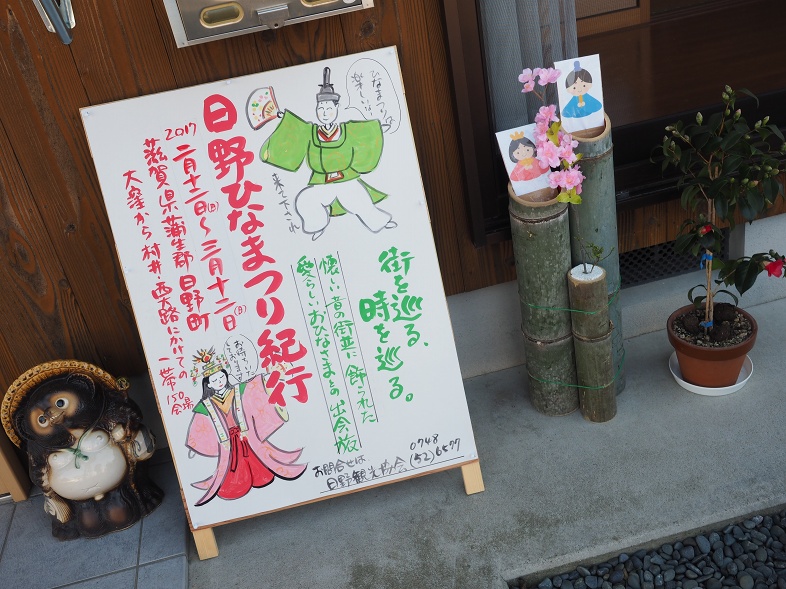 日野ひなまつり紀行
2017
二月十二日(日)～三月十二日(日)
滋賀県蒲生郡日野町
大窪から村井、西大路にかけての
一帯
150会場
ひなまつりは
楽しいな
来て下され
街を巡る、
時を巡る。
懐しい昔の街並に飾られた
愛らしいおひなさまとの出会旅
お待ちいたし
ております
お問合せは
日野観光協会
0748
(52)6577